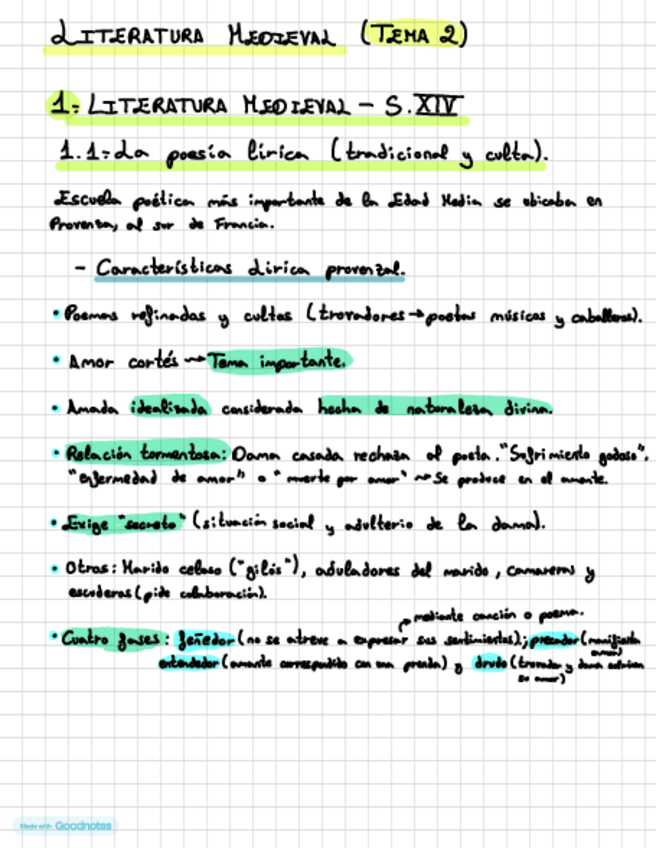 LITERATURA MEDIEVAL (TEMA 2)
1.- LITERATURA MEDIEVAL - S.XIV
1.1- La poesía lírica (tradicional y culta).
Escuela poética más importante de la Edad Media se ubicaba en
Provenza, al sur de Francia.
- Características lírica provenzal.
• Poemas refinados y cultos (trovadores → poetas músicos y caballeros).
• Amor cortés → Tema importante.
• Amada idealizada considerada hecha de naturaleza divina.
• Relación tormentosa: Dama casada rechaza al poeta. "Sufrimiento gozoso",
"enfermedad de amor" o "muerte por amor" → Se produce en el amante.
• Exige "secreto" (situación social y adulterio de la dama).
• Otros: Marido celoso ("gilós"), aduladores del marido, camareras y
escuderos (pide colaboración).
mediante canción o poema.
• Cuatro fases: feñedor (no se atreve a expresar sus sentimientos); precador (manifiesta
amor)
entendedor (amante correspondido con una prenda) y drudo (trovador y dama
su amor)
Made with Goodnotes